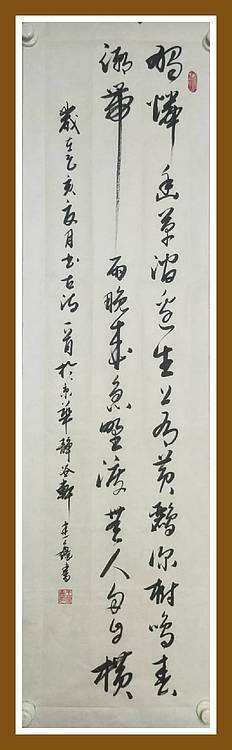 獨憐幽草澗邊生上有黃鸝深樹鳴春
潮帶雨晚來急野渡無人舟自橫
歲在乙亥夏月書古詩一首於京華靜谷軒